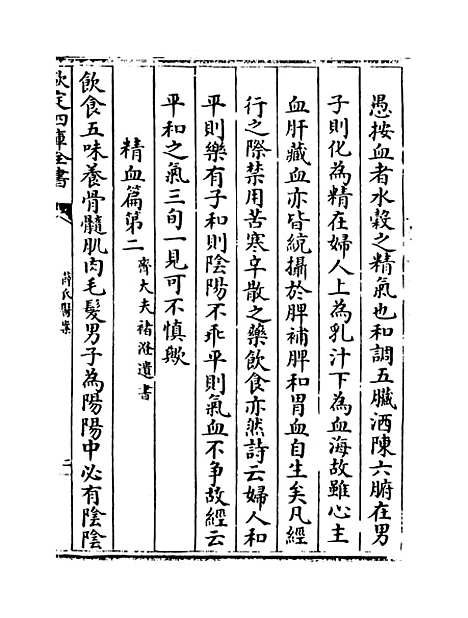 愚按血者水穀之精氣也和調五臟洒陳六腑在男
子則化為精在婦人上為乳汁下為血海故雖心主
血肝藏血亦皆統攝於脾補脾和胃血自生矣凡經
行之際禁用苦寒辛散之藥飲食亦然詩云婦人和
平則樂有子和則陰陽不乖平則氣血不争故經云
平和之氣三旬一見可不慎歟
精血篇第二 齊大夫褚澄遺書
飲食五味養骨髓肌肉毛髮男子為陽陽中必有陰陰
欽定四庫全書
薛氏醫案
二